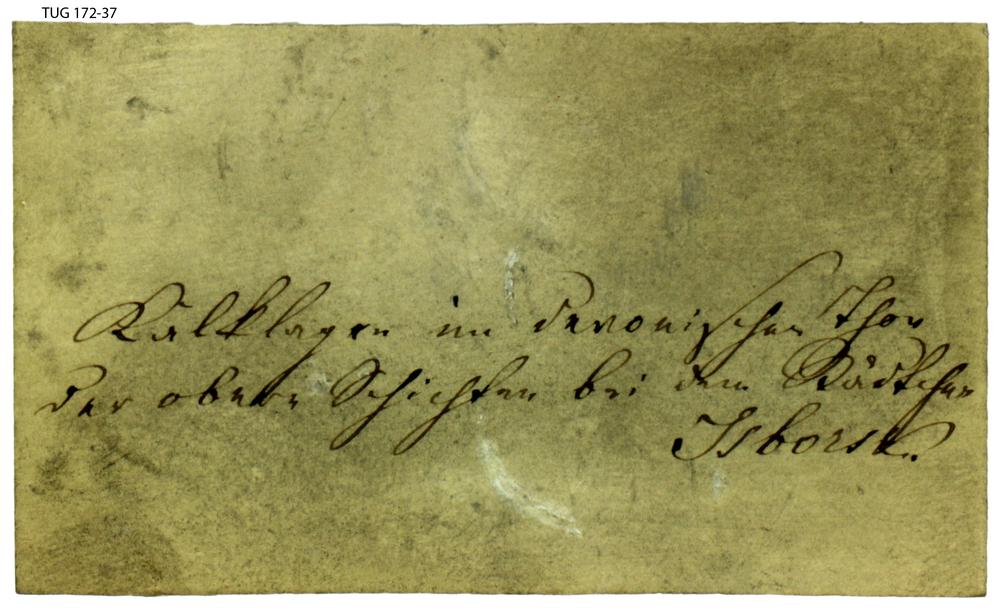 TUG 172-37
Kalklagen im devonischen Thon
der obern Schichten bei dem Städtchen
Isborsk.